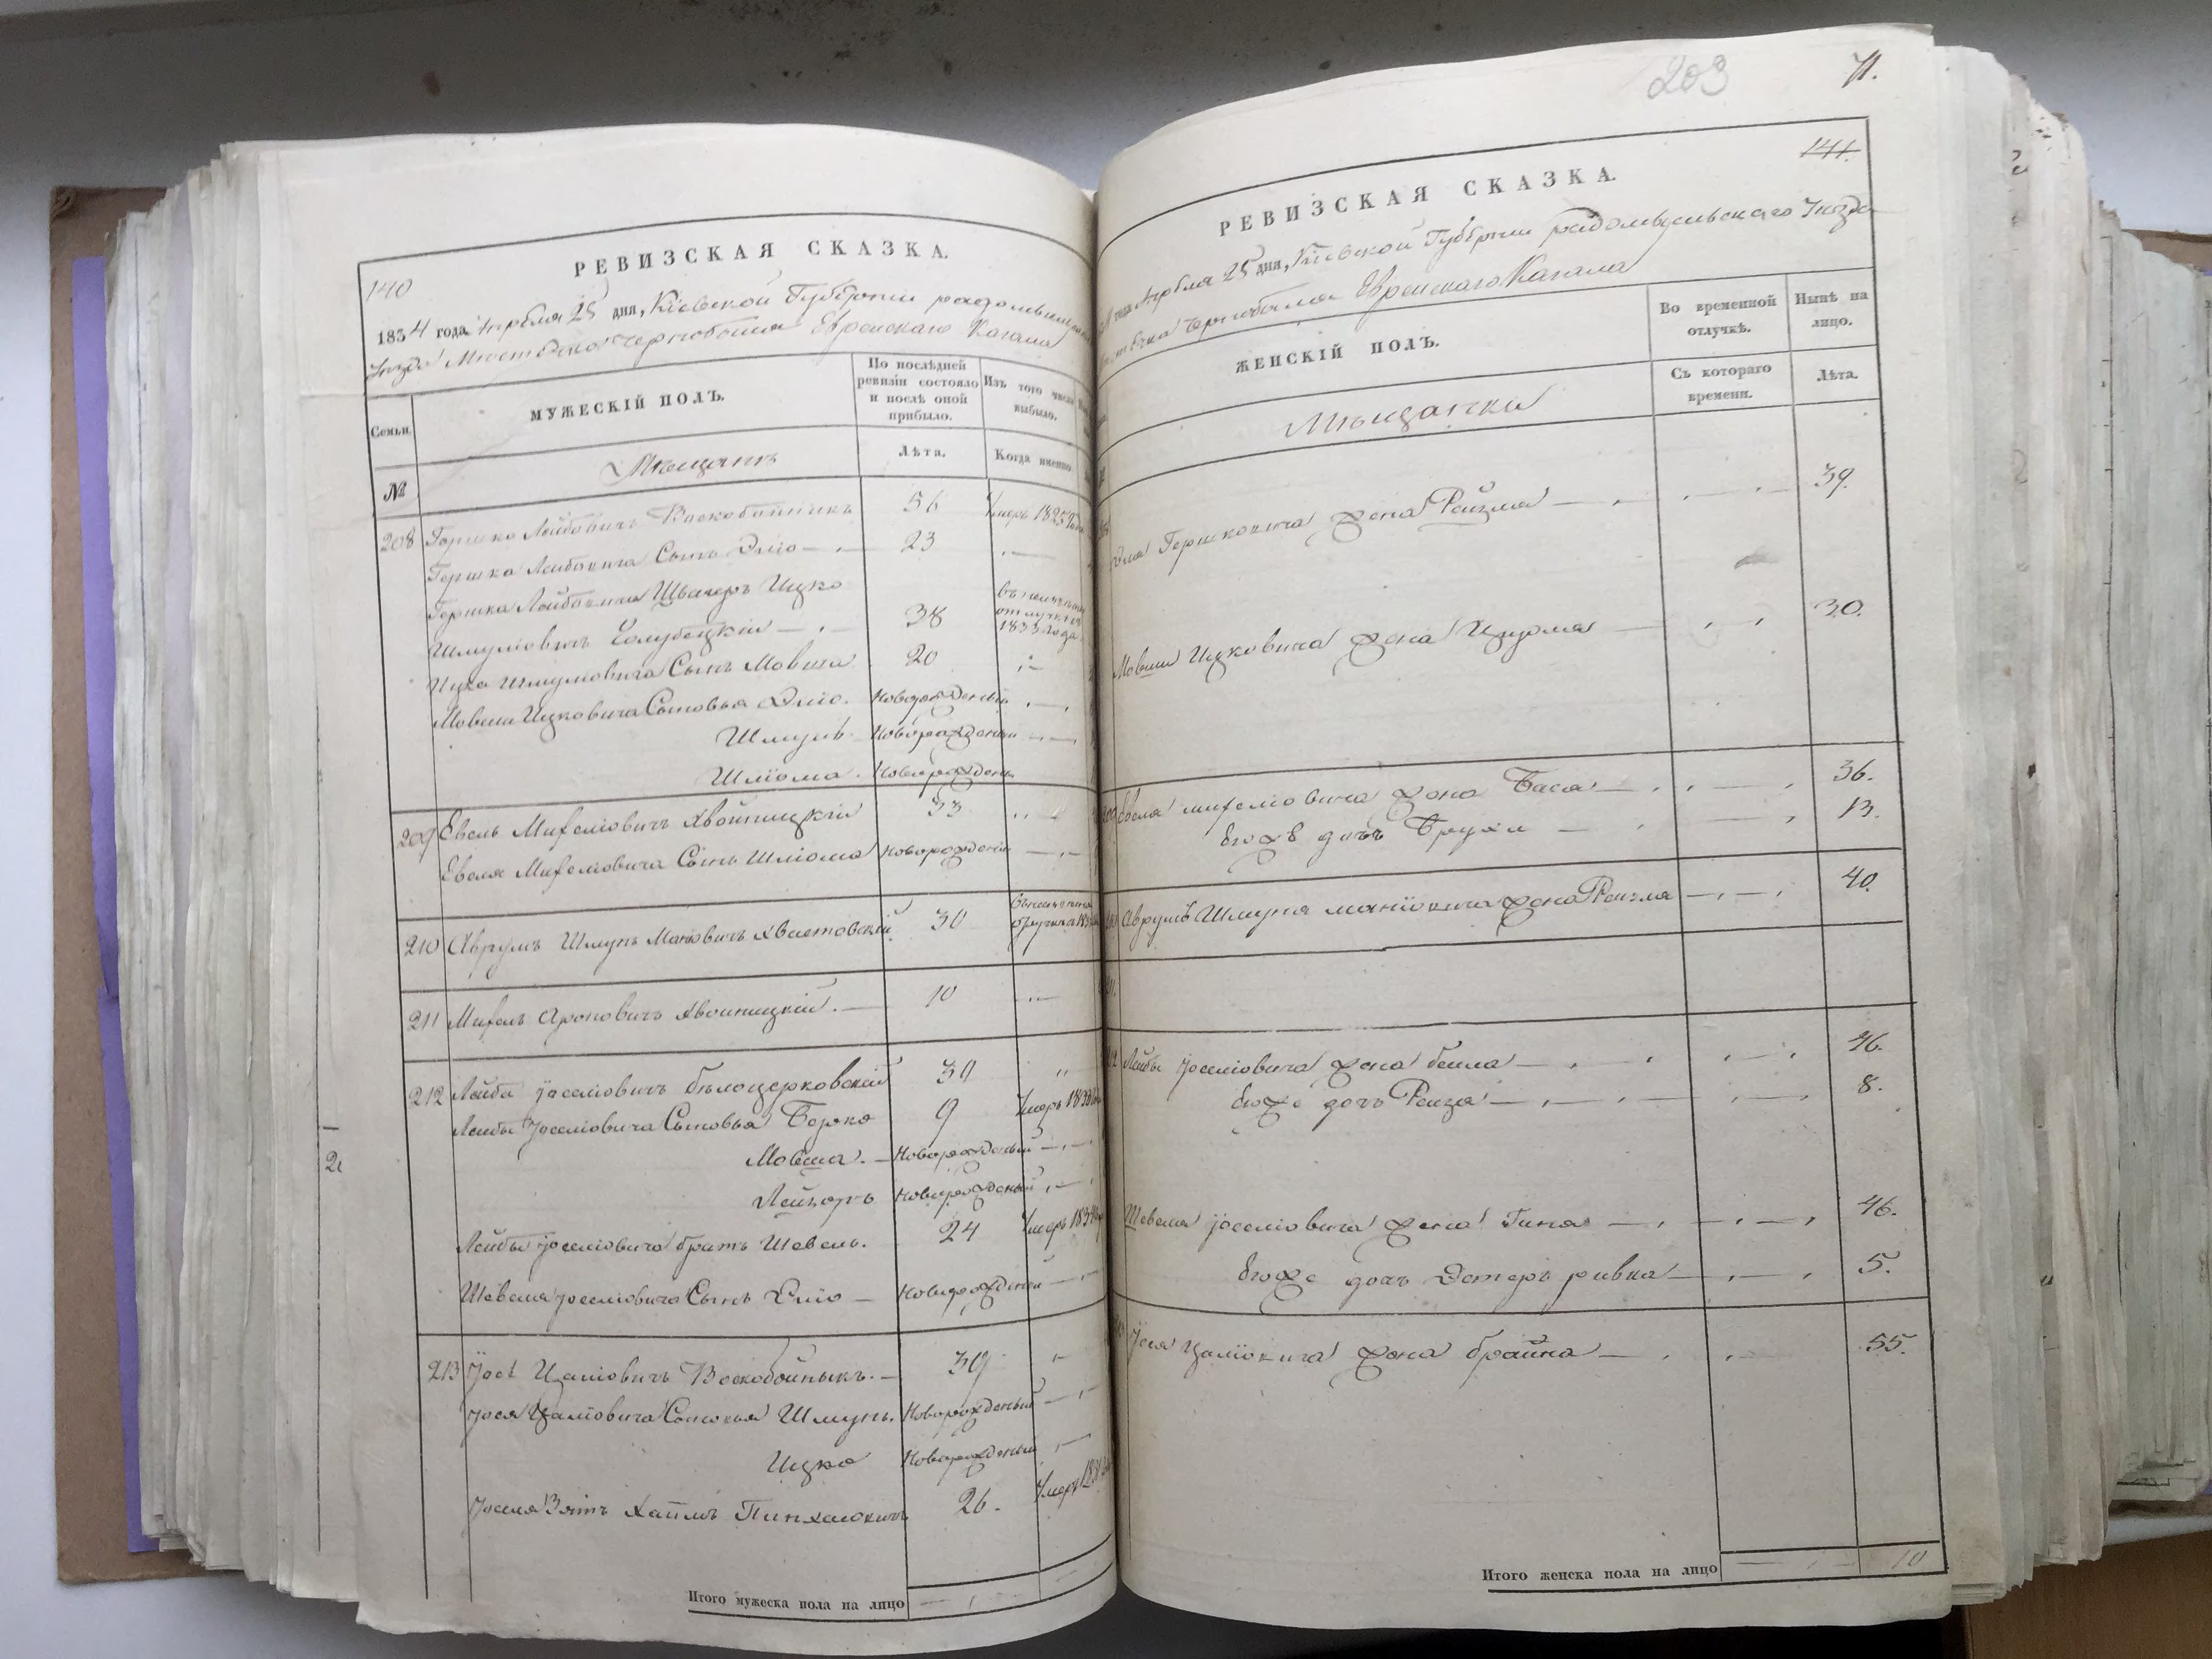 140
РЕВИЗСКАЯ СКАЗКА.
1834 года Апреля 25 дня, Кіевской Губерніи
Мѣстечка Чернобыля Еврейскаго Кагала
Семьи.
МУЖЕСКІЙ ПОЛЪ.
По послѣдней ревизіи состояло и послѣ оной прибыло.
Изъ того числа выбыло.
№
Мѣщанъ
Лѣта.
Когда именно
208 Гершко Лейбовичъ Воскобойникъ 56 Умеръ
Гершка Лейбовича Сынъ Эліо 23
Гершка Лейбовича Швагеръ Ицко
Шмуловичъ Голубецкій 38 отлучкѣ 1833 года
Ицка Шмуловича Сынъ Мовша 20
Мовши Ицковича Сыновья Эліо. Новорожденный
Шмуль Новорожденный
Шліома. Новорожден
209 Евель Михеліовичъ Хвойницкій 33
Евеля Михеліовича Сынъ Шліома Новорожденій
210 Аврумъ Шмуль Маніовичъ Хвастовскій 30
211 Михель Ароновичъ Хвойницкій. 10
212 Лейба Іоселіовичъ бѣлоцерковскій 30
Лейбы Іоселіовича Сыновья Берко 9 Умеръ
Мовша. Новорожденый
Лейзоръ Новорожденый
Лейбы Іоселіовича братъ Шевель. 24 Умеръ
Шевеля Іоселіовича Сынъ Эліо Новорожденый
213 Цаліовичъ Воскобойныкъ. 39
Цаліовича Сыновья Шмуль. Новорожденый
Ицко Новорожденый
Іоселя Зять Хаимъ Пинхасовичъ 26. Умеръ
Итого мужеска пола на лицо
203
71.
141.
РЕВИЗСКАЯ СКАЗКА.
года Апреля 25 дня, Кіевской Губерніи радомысльскаго Уѣзда
Чернобыля Еврейскаго Кагала
ЖЕНСКІЙ ПОЛЪ.
Во временной отлучкѣ.
Нынѣ на лицо.
Мѣщанки
Съ котораго времени.
Лѣта.
Гершковича жена Рейзля 39.
Мовши Ицковича жена 30.
Евеля михеліовича жена Бася 36.
его жѣ дочь Бруха 13.
Аврумъ Шмуля маніовича жена Реизля 40.
Лейбы Іоселіовича жена беила 46.
его же дочь Реиза 8.
Шевеля Іоселіовича жена Гина 46.
его же дочь Эстеръ ривка 5.
Цаліовича жена браина 55.
Итого женска пола на лицо 10